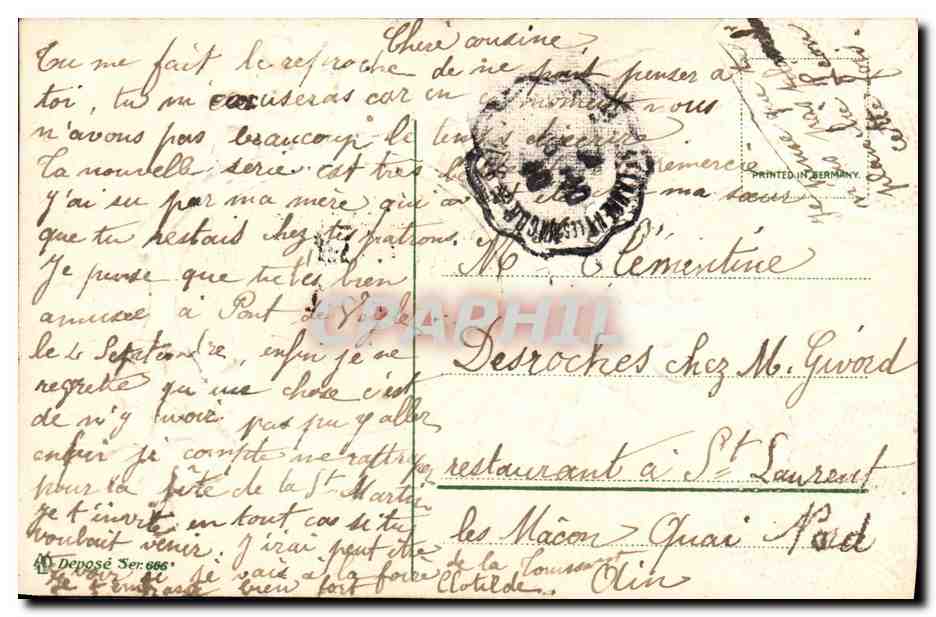 Chère cousine,
Tu me fait le reproche de ne pas penser à
toi, tu m'excuseras car en ce moment nous
n'avons pas beaucoup le temps d'écrire
Ta nouvelle série est très remercie
J'ai su par ma mère que ma sœur
que tu restais chez tes patrons.
Je pense que tu t'es bien
amusée à Pont de Veyle
le 4 Septembre, enfin je ne
regrette qu'une chose c'est
de n'y avoir pas pu y aller
enfin je compte me rattraper
pour la fête de la St Martin
je t'invite en tout cas si tu
voulait venir. J'irai peut être
te voir si je vais à la foire de la Toussaint
Je t'embrasse bien fort Clotilde
Melle Clémentine
Desroches chez M. Givord
restaurant à St Laurent
les Mâcon Quai Nord
Ain
PRINTED IN GERMANY.
Deposé Ser. 666
CPAPHIL